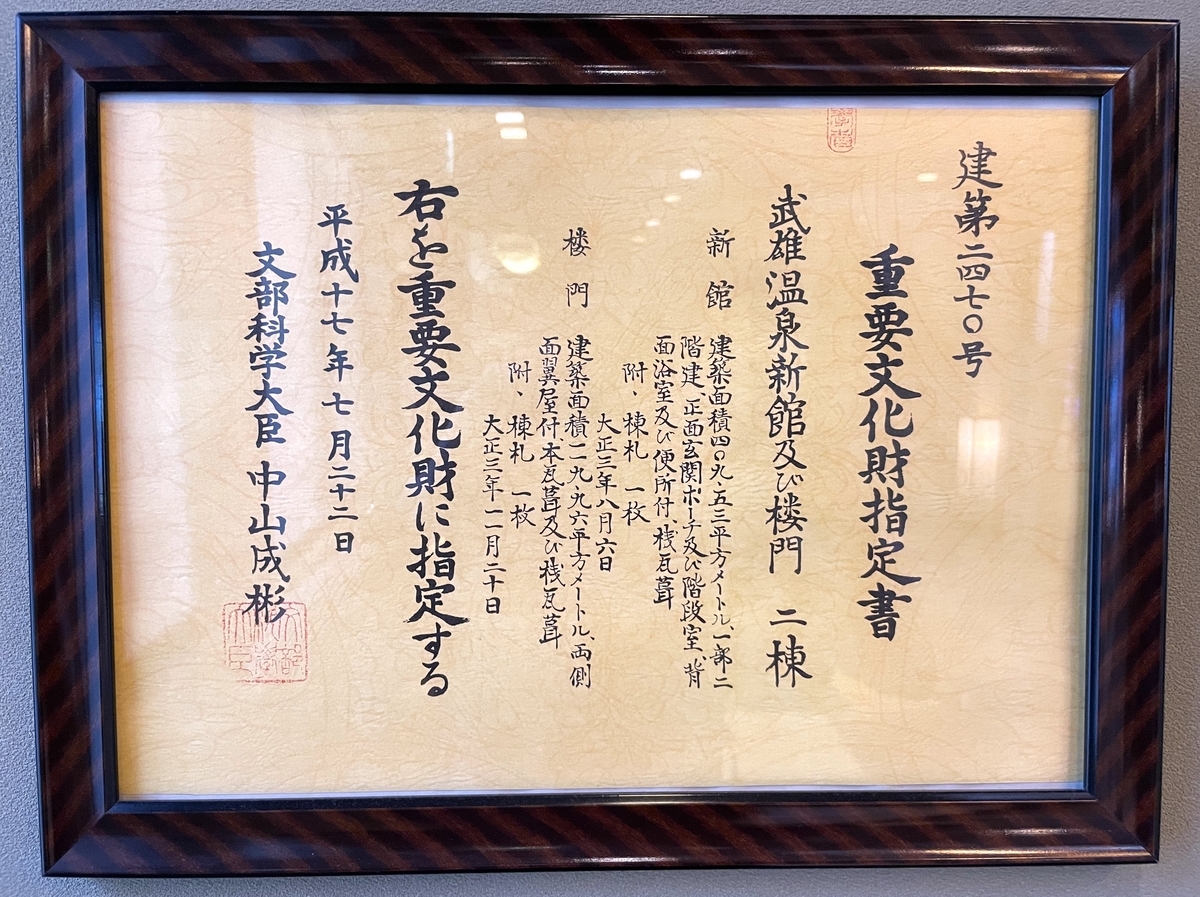 建第二四七〇号
重要文化財指定書
武雄温泉新館及び楼門 二棟
新館 建築面積四〇九・五三平方メートル、一部二
階建、正面玄関ポーチ及び階段室、背
面浴室及び便所付、桟瓦葺
附、棟札 一枚
大正三年八月六日
楼門 建築面積一一九・九六平方メートル、両側
面翼屋付、本瓦葺及び桟瓦葺
附、棟札 一枚
大正三年一一月二十日
右を重要文化財に指定する
平成十七年七月二十二日
文部科学大臣 中山成彬